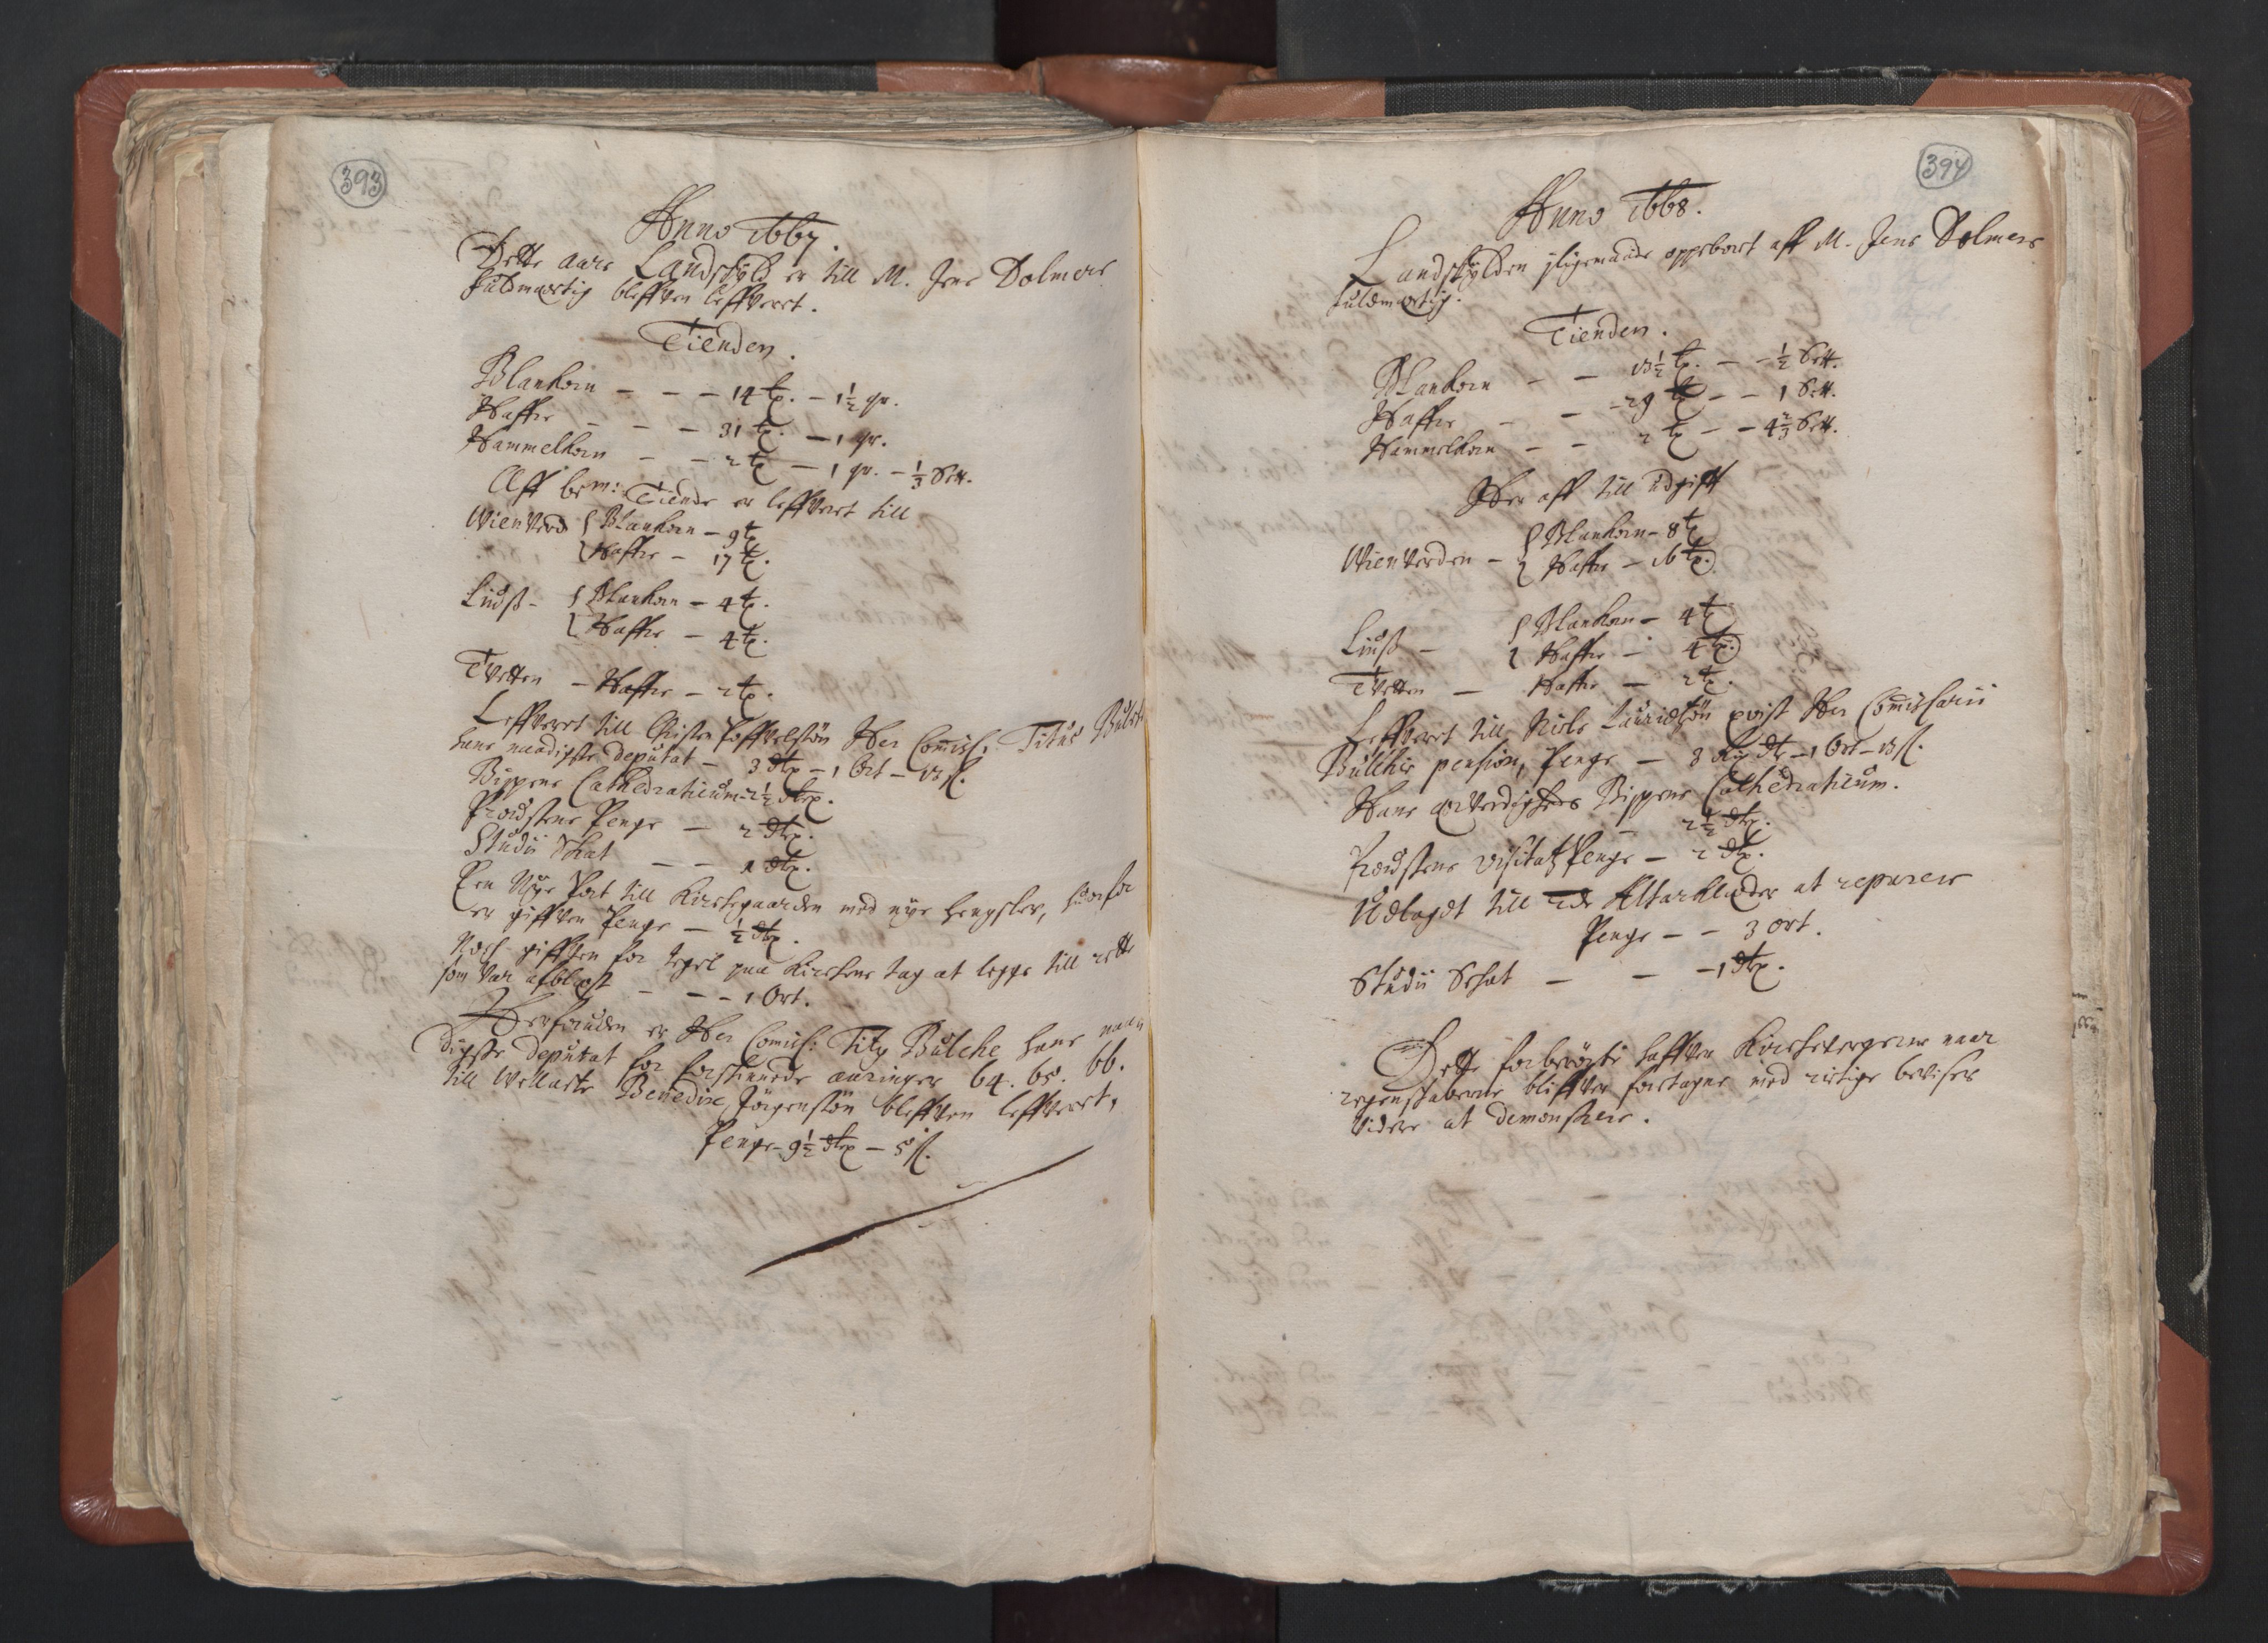 393
Anno 1667.
Dette aars Landschyld er till M. Jens Dolmers
fuldmectig bleffven leffverrt.
Tienden.
Blankorn - - - 14 tp. - 1½ qr.
Haffre - - - 31 tp. - 1 qr.
Hammelkorn - - 2 tp - 1 qr. - ⅓ Sett.
Aff bem: Tiende er leffvert till
Wienverd { Blankorn - 9 tp
{ Haffre - 17 tp.
Liudss - { Blankorn - 4 tp.
{ Haffre - 4 tp.
Tvetten - Haffre - 2 tp.
Leffverrt till Christen Poffvelssøn Her Comiss: Titus Bulche
hans naadigste deputat - 3 dlr - 1 Ort - 13 ß.
Bispens Cathedraticum - 2½ dlr.
Prousstens Penge - 2 dlr.
Studii Skat - - 1 dlr.
Een Nye Port till Kirchegaarden med nye hengsler, huorfor
er giffven Penge - ½ dlr.
Noch giffven for tegel paa Kirchens tag at legge till rette
som var afblæst - - - 1 Ort.
Herforuden er Her Comiss: Titg Bulche hans naa
digste deputat for forschreffne aaringer 64. 65. 66.
till Welluiste Benedix Jørgenssøn bleffven leffverrt,
Penge - 9½ dlr - 5 ß.
394
Anno 1668.
Landschylden jligemaade oppebaaret aff M. Jens Dolmers
fuldmectig.
Tienden.
Blankorn - - 13½ tp. - - ½ Sett.
Haffre - - 29 tp - - 1 Sett.
Hammelkorn - - 2 tp - - 4⅔ Sett.
Her aff till udgifft
Wienverden - { Blankorn - 8 tp
{ Haffre - 16 tp.
Liuss - { Blankorn - 4 tp
{ Haffre - 4 tp.
Tvetten - Haffre - 2 tp.
Leffverrt till Niels Lauridtzøn qvist Her Comissarii
Bulchis pension, Penge - 3 Rix dlr - 1 Ort - 13 ß.
Hans ærverdigheds Bispens Cathedraticum.
- 2½ dlr.
Proustens visitatz Penge - 2 dlr.
Udlagdt till Altarklæder at reparere
Penge - - 3 ort.
Studii Schat - - - 1 dlr.
Dette forberørte haffver Kircheværgerne naar
regenskaberne bliffver foretagne med rictige beviser
videre at demonstrere.